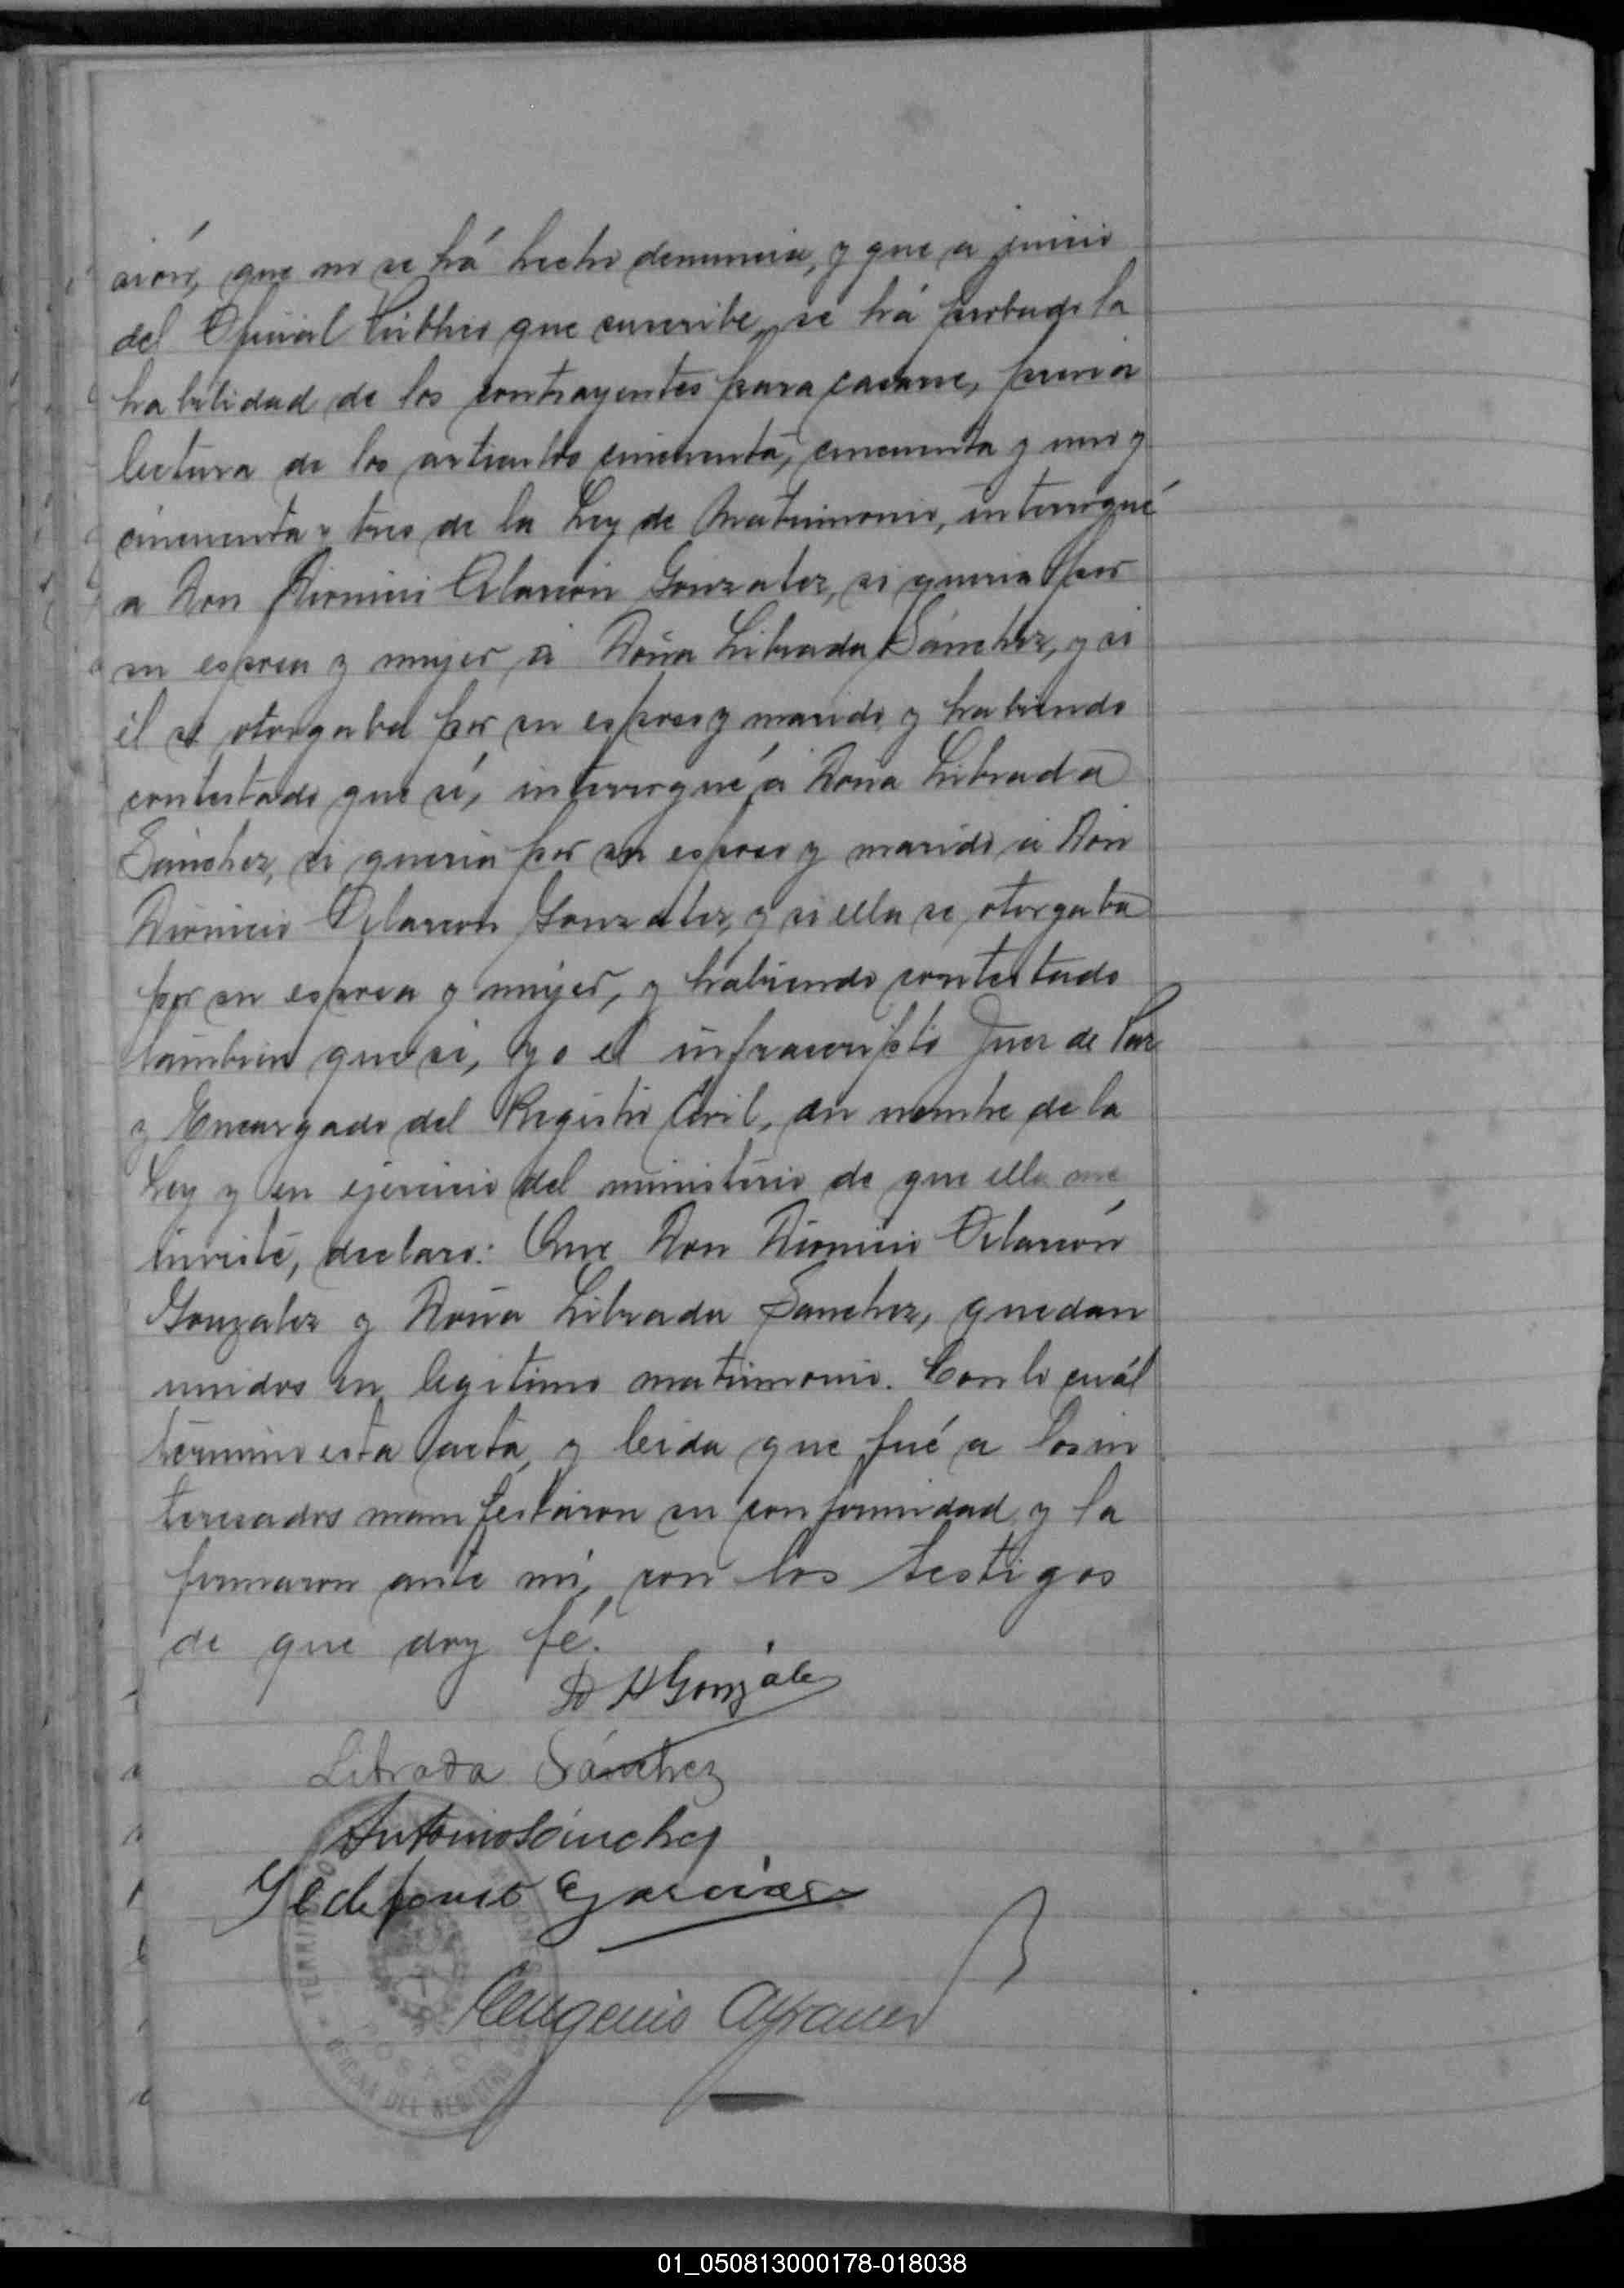 sión, que no se há hecho denuncia, y que a juicio
del Oficial Público que suscribe, se há probado la
habilidad de los contrayentes para casarse, previa
lectura de los articulos cincuenta, cincuenta y uno y
cincuenta y tres de la Ley de Matrimonio, interrogué
a Don Dionicio Alarcón Gonzalez, si queria por
su esposa y mujer á Doña Librada Sánchez, y si
él se otorgaba por su esposo y marido y habiendo
contestado que sí, interrogué á Doña Librada
Sánchez, si queria por su esposo y marido á Don
Dionicio Alarcon Gonzalez, y si ella se otorgaba
por su esposa y mujer, y habiendo contestado
tambien que si, yo el infrascripto Juez de Paz
y Encargado del Registro Civil, en nombre de la
Ley y en ejercicio del ministerio de que ella me
inviste, declaro: Que Don Dionicio Alarcón
Gonzalez y Doña Librada Sanchez, quedan
unidos en legitimo matrimonio. Con lo cuál
termino esta acta, y leida que fué a los in
teresados manifestaron su conformidad y la
firmaron ante mi, con los testigos
de que doy fé.
D A González
Librada Sánchez
Antonio Sánchez
Ildefonso Garcia
Eugenio
TERRITORIO
OFICINA DEL REGISTRO
01_050813000178-018038